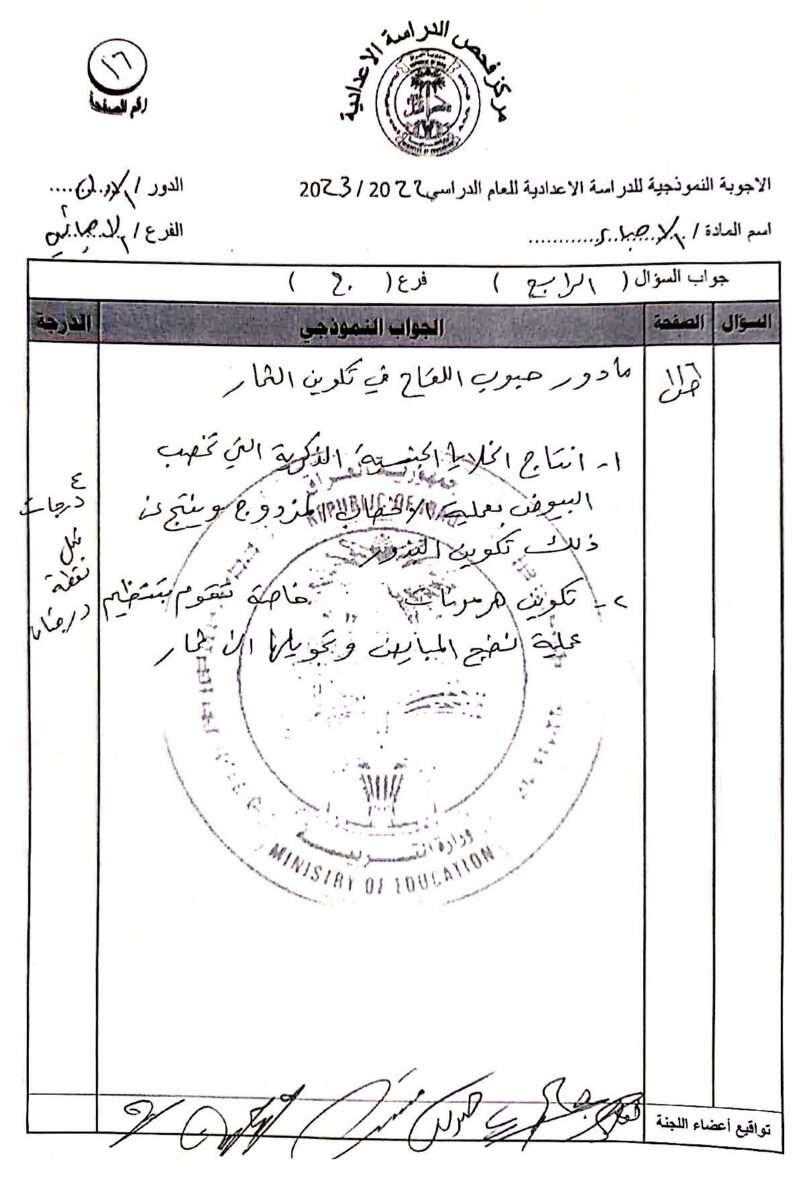 مركز فحص الدراسة الاعدادية
١٦
رقم الصفحة
الاجوبة النموذجية للدراسة الاعدادية للعام الدراسي 2022 / 2023
الدور / الاول
اسم المادة / الاحياء
الفرع / الاحيائي
جواب السؤال ( الرابع ) فرع ( ج )
السؤال الصفحة الجواب النموذجي الدرجة
ص١١٦
مادور حبوب اللقاح في تكوين الثمار
١- انتاج الخلايا الجنسية الذكرية التي تخصب
البيوض بعملية الاخصاب المزدوج وينتج عن
ذلك تكوين البذور
٢- تكوين هرمونات خاصة تقوم بتنظيم
عملية نضج المبايض وتحويلها الى ثمار
٤
درجات
لكل
نقطة
درجتان
جمهورية العراق
REPUBLIC OF IRAQ
وزارة التربية
MINISTRY OF EDUCATION
تواقيع أعضاء اللجنة